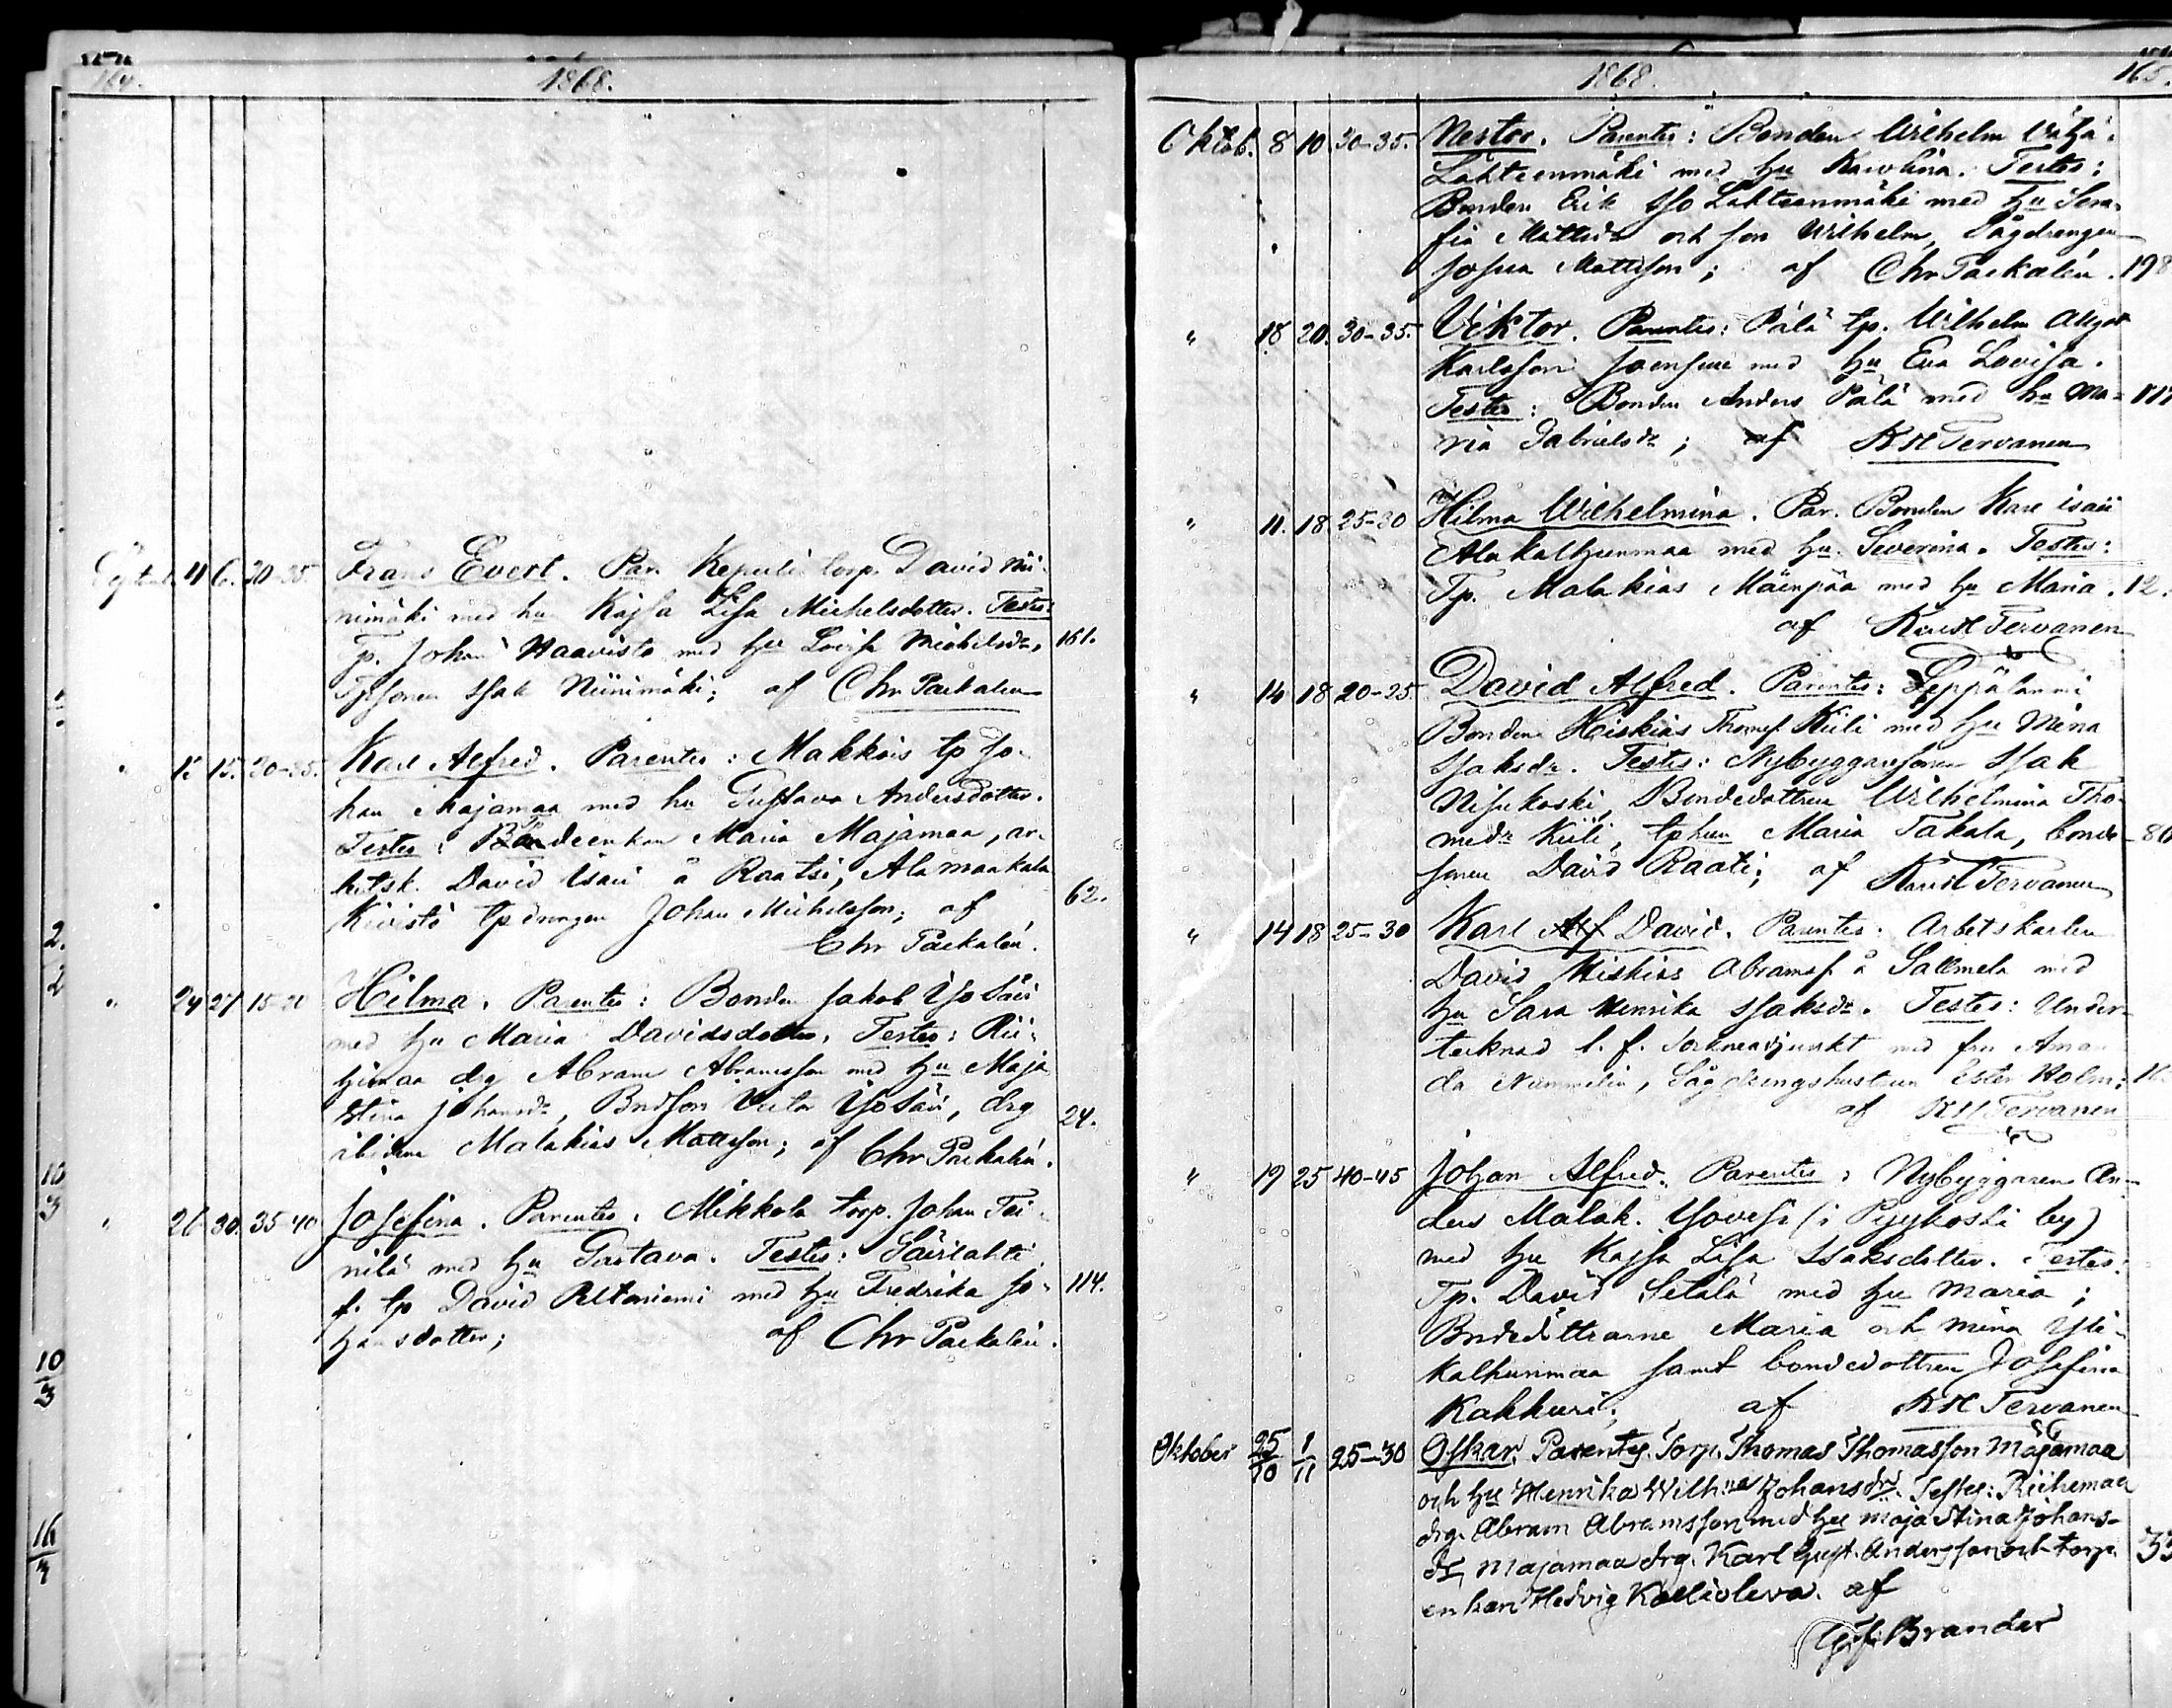 164.
1868.
Septemb. 4 6. 30-35 Frans Evert. Par. torp. David Nii-
nimäki med hu Kajsa Lisa Michelsdotter. Testes:
Tp. Johan Haavisto med hu Lovisa Michelsdr, 161.
Tpsonen Isak Niinimäki; af Chr Packalén
" 12 15. 20-25. Karl Alfred. Parentes: Makkois tp Jo-
han Majamaa med hu Gustava Andersdotter.
Testes: Tp enkan Maria Majamaa, ar-
betsk. David Isaii å Raatsi, Ala maakala
Kivistö tp drengen Johan Michelsson; af 62.
Chr Packalén.
" 24 27 15-20 Hilma. Parentes: Bonden Jakob Yso Säii
med hu Maria Davidsdotter. Testes: Rii-
himaa drg Abram Abramsson med hu Maja
Stina Johansdr, Bndson Yso Säii, drg 24.
Malakias Mattsson; af Chr Packalén.
" 26 30. 35-40 Josefina. Parentes. Mikkola torp. Johan Tei-
nilä med hu Gustava. Testes: Säirilahti
f. tp David Peltoniemi med hu Fredrika Jo- 114.
hansdotter; af Chr Packalén.
2.
2
10
3
10
3
16
1868.
165.
Oktob. 8 10 30-35. Nestor. Parentes: Bonden Wilhelm
Lähteenmäki med hu Karolina. Testes:
Bonden Erik Iso Lähteenmäki med hu Sera-
fia Mattsdr och son Wilhelm, Sågdrengen
Josua Mattsson; af Chr Packalén. 198
" 18 20. 30-35. Viktor. Parentes: Pälä tp. Wilhelm August
Karlsson Joensuu med hu Eva Lovisa.
Testes: Bonden Anders Pälä med hu Ma-
ria Gabrielsdr; af KH Tervanen
" 11. 18 25-30 Hilma Wilhelmina. Par. Bonden Karl Isaii
Ala kalhunmaa med hu Severina. Testes:
Tp. Malakias Mäenpää med hu Maria. 12.
af Karl H Tervanen
" 14 18 20-25 David Alfred. Parentes: Leppälammi
Bonden Hiskias Thomss. Kiili med hu Mina
Isaksdr. Testes: Nybyggaresonen Isak
Nisukoski, Bondedottren Wilhelmina Tho-
medr Kiili, tphun Maria Takala, bonde- 80
sonen David Raati; af Karl H Tervanen
" 14 18 25-30 Karl Alf David. Parentes: Arbetskarlen
David Hiskias Abramss. å Sallmela med
hu Sara Henrika Isaksdr. Testes: Under-
tecknad t. f. Sockneadjunkt med fru Aman-
da Nummelin, Sågdrengshustrun Ester Holm:
af KH Tervanen
" 19 25 40-45 Johan Alfred. Parentes: Nybyggaren An-
ders Malak. Yovesi (i Pyykoski by)
med hu Kajsa Lisa Isaksdotter. Testes:
Tp. David Setälä med hu Maria;
Bndedöttrarne Maria och Mina Yli-
kalhunmaa samt bondedottren Josefina
Kahkuri; af KH Tervanen
Oktober 25/10 1/11 25-30 Oskar. Parentes. Torp. Thomas Thomasson Majamaa
och hu Henrika Wilh:na Johansdr. Testes: Riihemaa
drg. Abram Abramsson med hu Maja Stina Johans-
dr, Majamaa drg. Karl Gust. Andersson och torp.
enkan Hedvig Kallioleva. af
G. f. Brander